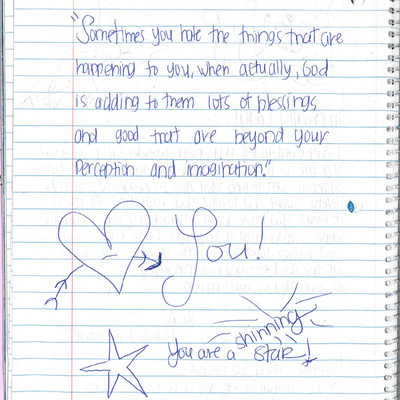 "Sometimes you hate the things that are
happening to you, when actually, God
is adding to them lots of blessings
and good that are beyond your
perception and imagination."
You!
You are a shinning
star!